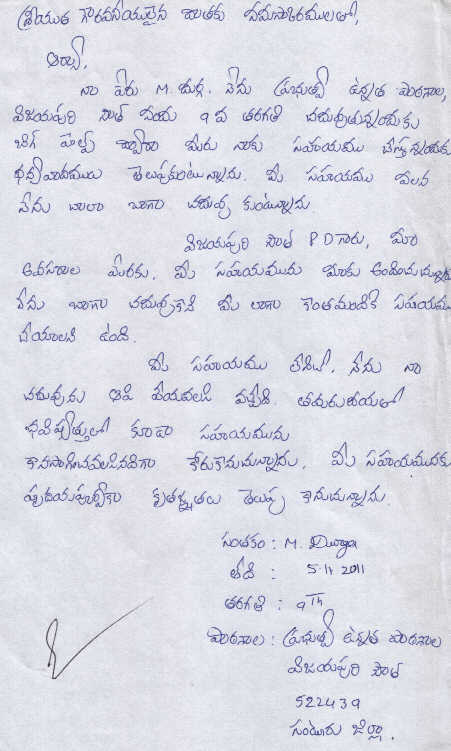 శ్రీయుత గౌరవనీయులైన దాతకు నమస్కారములతో,
ఆర్యా,
నా పేరు M. దుర్గ. నేను ప్రభుత్వ ఉన్నత పాఠశాల,
విజయపురి సౌత్ నందు 9వ తరగతి చదువుతున్నందుకు
బిగ్ హెల్ప్ ద్వారా మీరు నాకు సహాయము చేస్తున్నందుకు
ధన్యవాదములు తెలుపుకుంటున్నాను. మీ సహాయము వలన
నేను చాలా బాగా చదువు కుంటున్నాను.
విజయపురి సౌత్ P D గారు, మా
అవసరాల మేరకు, మీ సహాయమును మాకు అందించుచున్నారు
నేను బాగా చదువుకొని మీ లాగా కొంతమందికి సహాయము
చేయాలని ఉంది.
మీ సహాయము లేనిచో, నేను నా
చదువును ఆపి వేయవలసి వచ్చేది. తమరుదయతో
భవిష్యత్తులో కూడా సహాయమును
కొనసాగించవలసినదిగా కోరుకొనుచున్నాను. మీ సహాయమునకు
హృదయపూర్వక కృతజ్ఞతలు తెలుపు కొనుచున్నాను.
సంతకం : M. Durga
తేది : 5-11 2011
తరగతి : 9th
పాఠశాల : ప్రభుత్వ ఉన్నత పాఠశాల
విజయపురి సౌత్
522439
గుంటూరు జిల్లా.